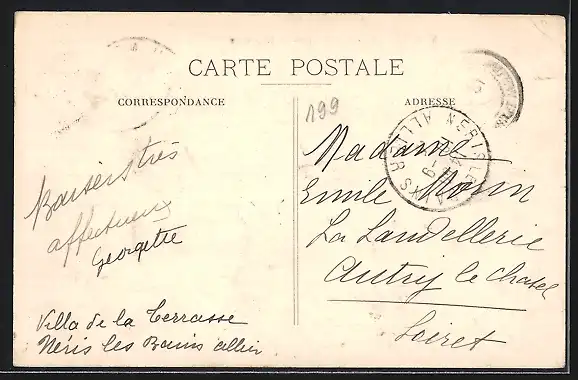 CARTE POSTALE
CORRESPONDANCE
ADRESSE
199
Baisers très
affectueux
Georgette
Villa de la Terrasse
Néris les Bains allier
NERIS-LES-BAINS ALLIER
Madame
Emile Morin
La Landellerie
Autry le chatel
Loiret